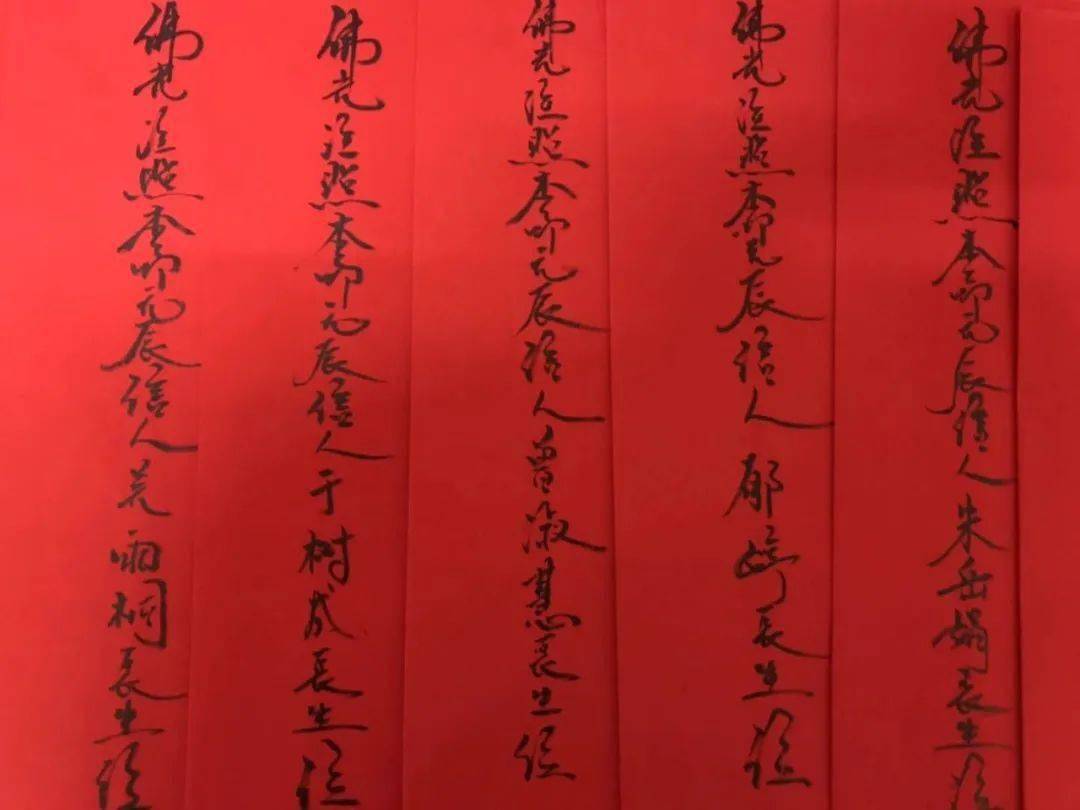 佛光注照本命元辰信人朱岳娟长生位
佛光注照本命元辰信人邝婷长生位
佛光注照本命元辰信人曾淑慧长生位
佛光注照本命元辰信人于树成长生位
佛光注照本命元辰信人雨桐长生位